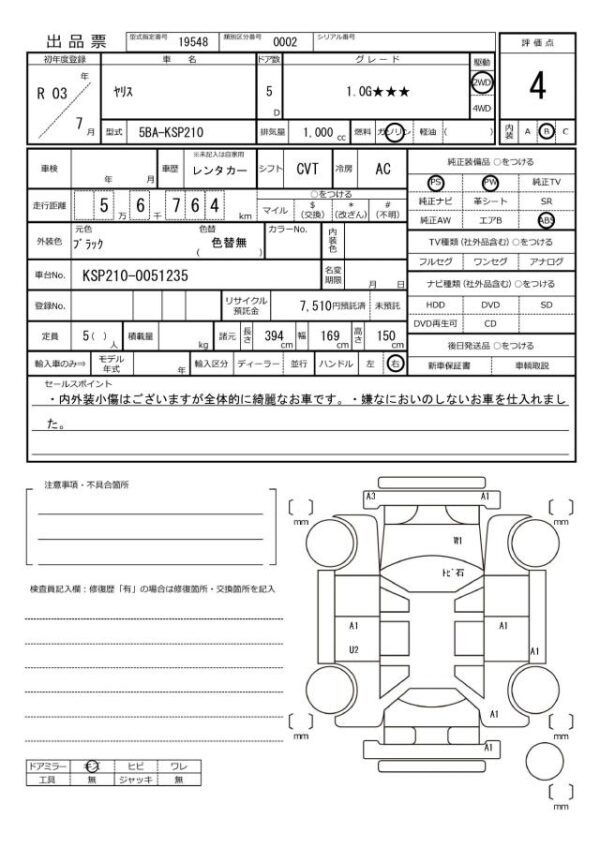 出品票 型式指定番号 19548 類別区分番号 0002 シリアル番号
評価点
初年度登録 車名 ドア数 グレード 駆動
R 03 年 ﾔﾘｽ 5 D 1.0G★★★ 2WD 4
7 月 4WD
型式 5BA-KSP210 排気量 1,000 cc 燃料 ガソリン 軽油 ( ) 内装 A B C
車検 年 月 車歴 ※未記入は自家用 レンタカー シフト CVT 冷房 AC 純正装備品 ○をつける
PS PW 純正TV
走行距離 5 万 6 千 7 6 4 km ○をつける
マイル $(交換) *(改ざん) #(不明)
純正ナビ 革シート SR
純正AW エアB ABS
外装色 元色 ﾌﾞﾗｯｸ 色替 色替無 ( ) カラーNo. 内装色
TV種類(社外品含む)○をつける
フルセグ ワンセグ アナログ
車台No. KSP210-0051235 名変期限 月 日
ナビ種類(社外品含む)○をつける
登録No. リサイクル預託金 7,510円預託済 未預託
HDD DVD SD
DVD再生可 CD
定員 5( ) 人 積載量 kg 諸元 長さ 394 cm 幅 169 cm 高さ 150 cm
後日発送品 ○をつける
輸入車のみ⇒ モデル年式 年 輸入区分 ディーラー 並行 ハンドル 左 右 新車保証書 車輌取説
セールスポイント
・内外装小傷はございますが全体的に綺麗なお車です。・嫌なにおいのしないお車を仕入れまし
た。
注意事項・不具合箇所
A3 A1
mm mm
W1
ﾄﾋﾞ石
検査員記入欄：修復歴「有」の場合は修復箇所・交換箇所を記入
A1 A1
U2 A1
A1
mm mm
A1
ドアミラー キズ ヒビ ワレ
工具 無 ジャッキ 無
mm